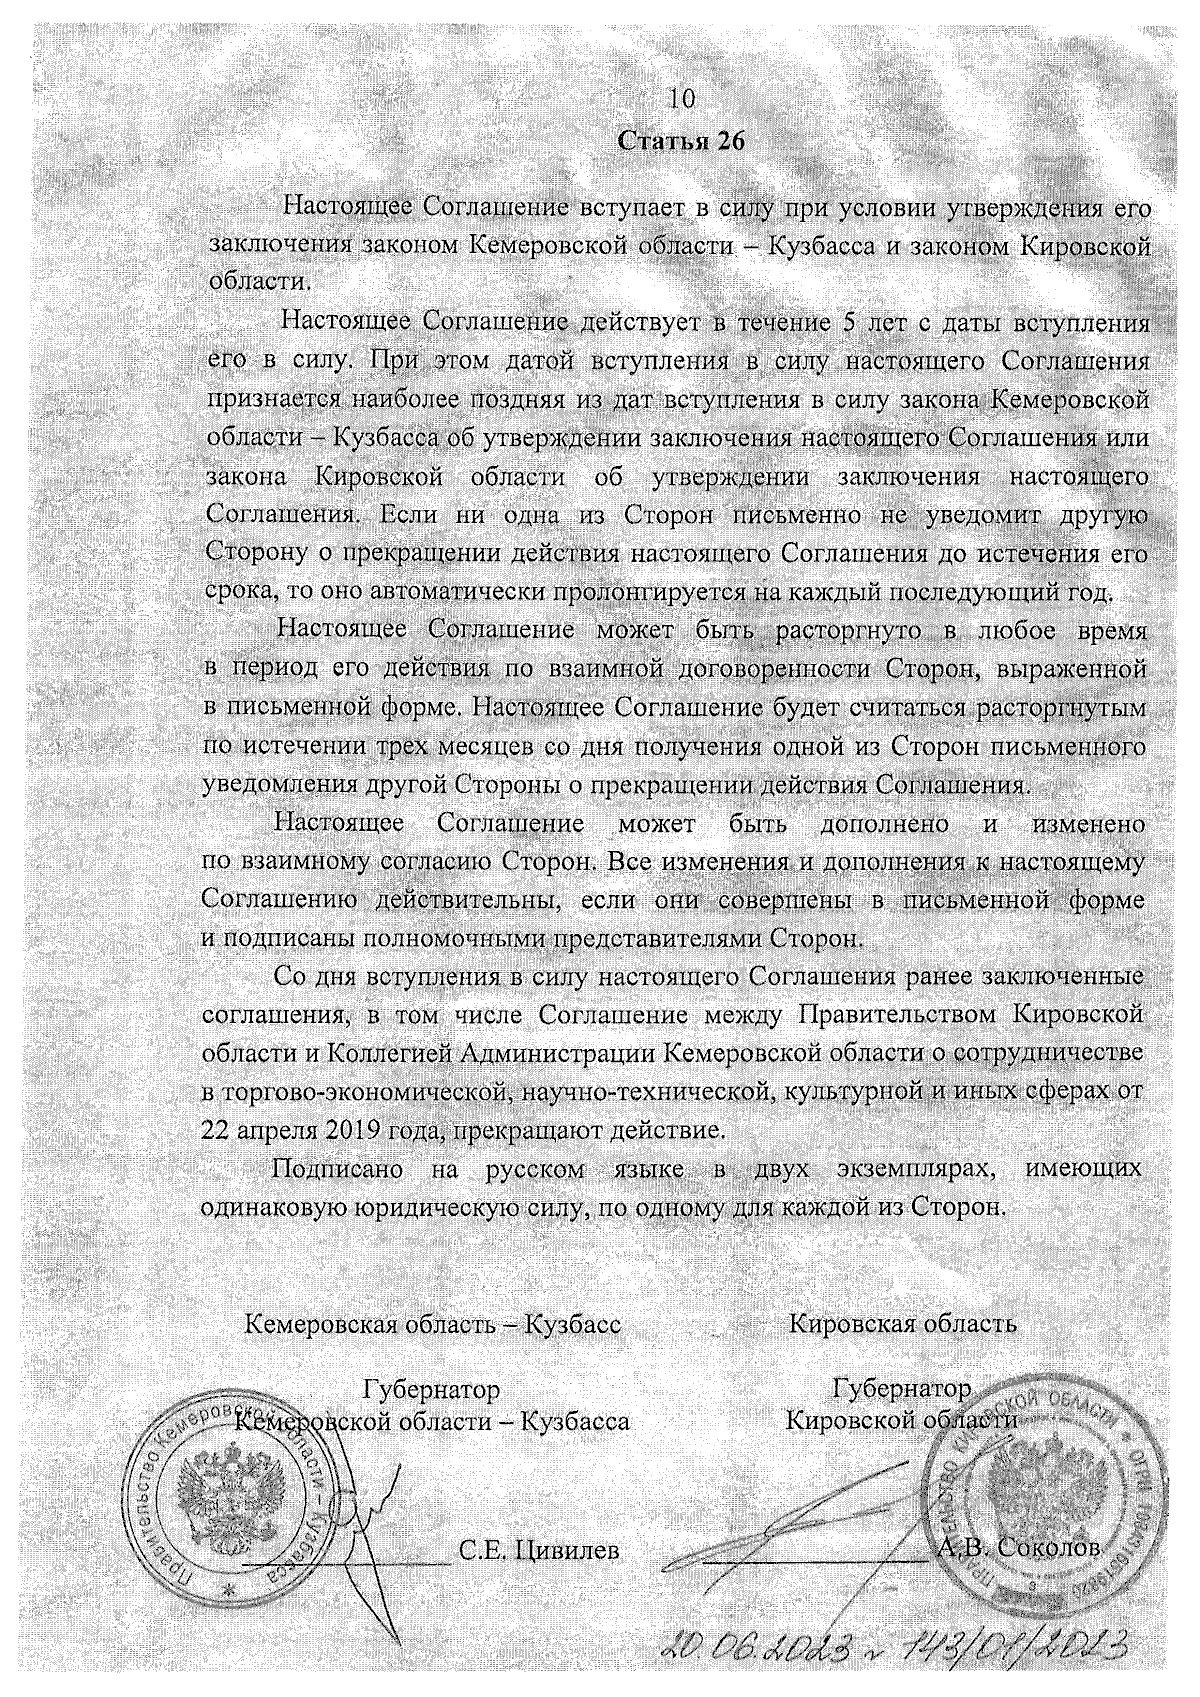 10
Статья 26
Настоящее Соглашение вступает в силу при условии утверждения его
заключения законом Кемеровской области – Кузбасса и законом Кировской
области.
Настоящее Соглашение действует в течение 5 лет с даты вступления
его в силу. При этом датой вступления в силу настоящего Соглашения
признается наиболее поздняя из дат вступления в силу закона Кемеровской
области – Кузбасса об утверждении заключения настоящего Соглашения или
закона Кировской области об утверждении заключения настоящего
Соглашения. Если ни одна из Сторон письменно не уведомит другую
Сторону о прекращении действия настоящего Соглашения до истечения его
срока, то оно автоматически пролонгируется на каждый последующий год.
Настоящее Соглашение может быть расторгнуто в любое время
в период его действия по взаимной договоренности Сторон, выраженной
в письменной форме. Настоящее Соглашение будет считаться расторгнутым
по истечении трех месяцев со дня получения одной из Сторон письменного
уведомления другой Стороны о прекращении действия Соглашения.
Настоящее Соглашение может быть дополнено и изменено
по взаимному согласию Сторон. Все изменения и дополнения к настоящему
Соглашению действительны, если они совершены в письменной форме
и подписаны полномочными представителями Сторон.
Со дня вступления в силу настоящего Соглашения ранее заключенные
соглашения, в том числе Соглашение между Правительством Кировской
области и Коллегией Администрации Кемеровской области о сотрудничестве
в торгово-экономической, научно-технической, культурной и иных сферах от
22 апреля 2019 года, прекращают действие.
Подписано на русском языке в двух экземплярах, имеющих
одинаковую юридическую силу, по одному для каждой из Сторон.
Кемеровская область – Кузбасс
Кировская область
Губернатор
Кемеровской области – Кузбасса
Губернатор
Кировской области
Правительство Кемеровской области – Кузбасса
ПРАВИТЕЛЬСТВО КИРОВСКОЙ ОБЛАСТИ * ОГРН
С.Е. Цивилев
А.В. Соколов
20.06.2023 № 143/01/2023